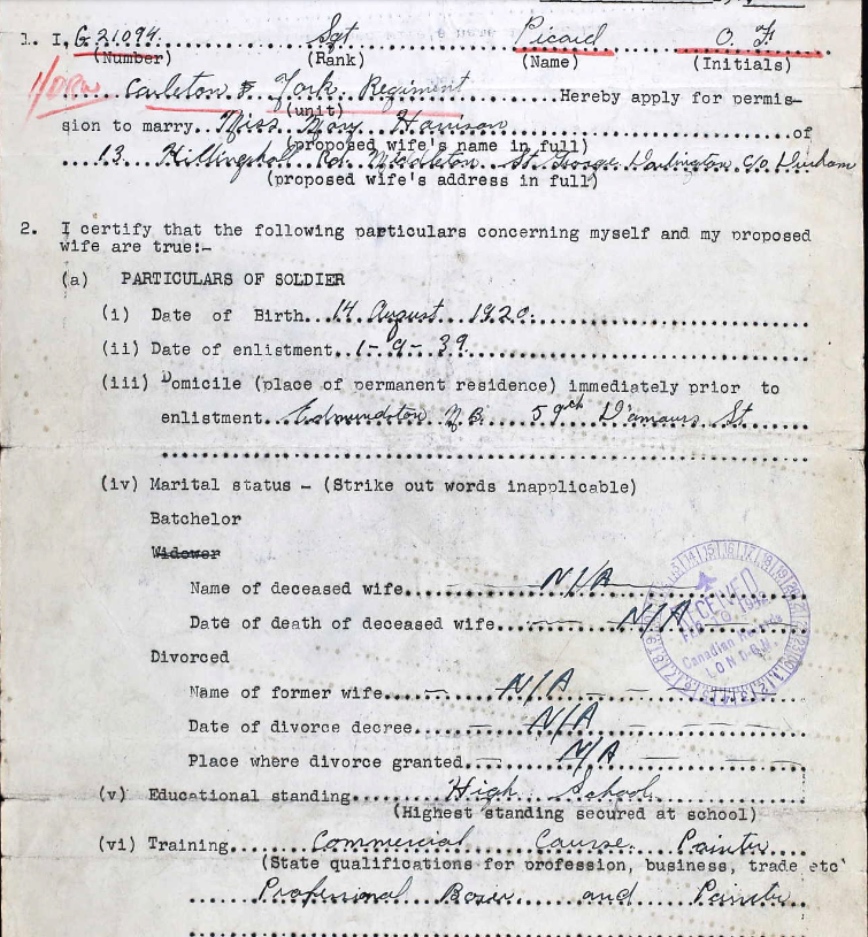 1. I, G 21094. Sgt Picard O. F.
(Number) (Rank) (Name) (Initials)
Carleton & York Regiment Hereby apply for permis-
(unit)
sion to marry Miss Mary Harrison of
(proposed wife's name in full)
13 Rd. Middleton St. George Darlington C/o Durham
(proposed wife's address in full)
2. I certify that the following particulars concerning myself and my proposed
wife are true:-
(a) PARTICULARS OF SOLDIER
(i) Date of Birth 14 August 1920.
(ii) Date of enlistment 1-9-39
(iii) Domicile (place of permanent residence) immediately prior to
enlistment Edmundston N.B. 59 D'amours St
(iv) Marital status - (Strike out words inapplicable)
Batchelor
Widower
Name of deceased wife N/A
Date of death of deceased wife N/A
RECEIVED
1942
Canadian Records
LONDON
Divorced
Name of former wife N/A
Date of divorce decree N/A
Place where divorce granted N/A
(v) Educational standing High School
(Highest standing secured at school)
(vi) Training Commercial Course. Painter
(State qualifications for profession, business, trade etc'
Professional Boxer and Painter